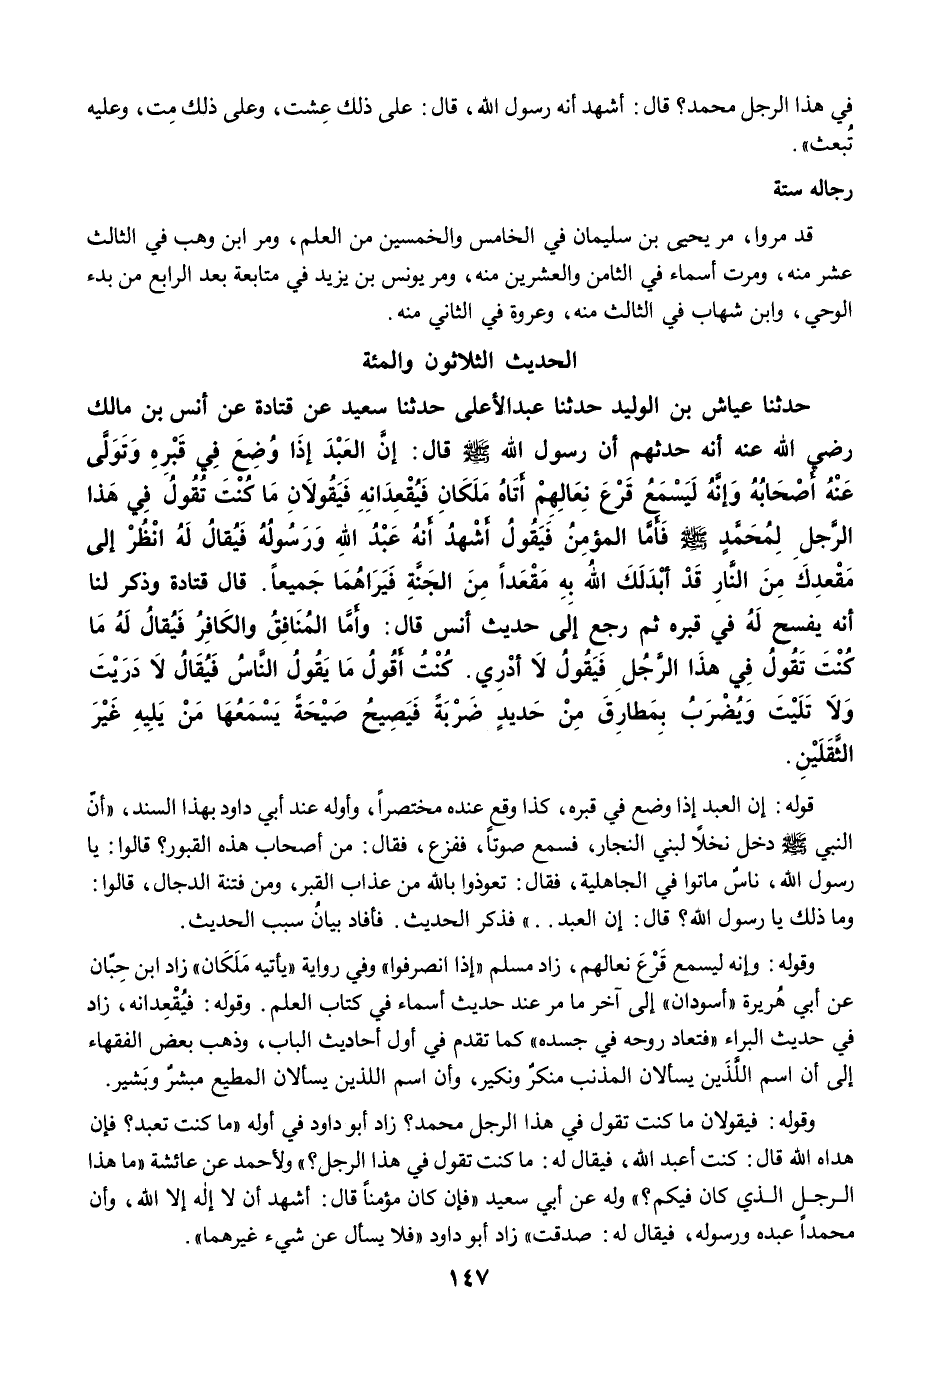 في هذا الرجل محمد؟ قال: أشهد أنه رسول الله، قال: على ذلك عِشت، وعلى ذلك مِت، وعليه
تُبعث».
رجاله ستة
قد مروا، مر يحيى بن سليمان في الخامس والخمسين من العلم، ومر ابن وهب في الثالث
عشر منه، ومرت أسماء في الثامن والعشرين منه، ومر يونس بن يزيد في متابعة بعد الرابع من بدء
الوحي، وابن شهاب في الثالث منه، وعروة في الثاني منه.
الحديث الثلاثون والمئة
حدثنا عياش بن الوليد حدثنا عبدالأعلى حدثنا سعيد عن قتادة عن أنس بن مالك
رضي الله عنه أنه حدثهم أن رسول الله ﷺ قال: إنَّ العَبْدَ إذَا وُضِعَ فِي قَبْرِهِ وَتَوَلَّى
عَنْهُ أَصْحَابُهُ وَإنَّهُ لَيَسْمَعُ قَرْعَ نِعَالِهِمْ أَتَاهُ مَلَكَانِ فَيُقْعِدَانِهِ فَيَقُولَانِ مَا كُنْتَ تَقُولُ فِي هَذَا
الرَّجلِ لِمُحَمَّدٍ ﷺ فَأَمَّا المؤمِنُ فَيَقُولُ أَشْهدُ أَنهُ عَبْدُ اللهِ وَرَسُولُهُ فَيُقالُ لَهُ انْظُرْ إلى
مَقْعدِكَ مِنَ النَّارِ قَدْ أبْدَلَكَ اللهُ بِهِ مَقْعَداً مِنَ الجَنَّةِ فَيَرَاهُمَا جَميعاً. قال قتادة وذكر لنا
أنه يفسح لَهُ في قبره ثم رجع إلى حديث أنس قال: وأَمَّا المُنَافِقُ والكَافِرُ فَيُقالُ لَهُ مَا
كُنْتَ تَقُولُ فِي هذَا الرَّجُلِ فَيَقُولُ لَا أدْرِي. كُنْتُ أَقُولُ مَا يَقُولُ النَّاسُ فَيُقَالُ لَا دَرَيْتَ
وَلَا تَلَيْتَ وَيُضْرَبُ بِمَطارِقَ مِنْ حَديدٍ ضَرْبَةً فَيَصِيحُ صَيْحَةً يَسْمَعُهَا مَنْ يَلِيهِ غَيْرَ
الثَّقَلَيْنِ.
قوله: إن العبد إذا وضع في قبره، كذا وقع عنده مختصراً، وأوله عند أبي داود بهذا السند، «أنّ
النبي ﷺ دخل نخلًا لبني النجار، فسمع صوتاً، ففزع، فقال: من أصحاب هذه القبور؟ قالوا: يا
رسول الله، ناسٌ ماتوا في الجاهلية، فقال: تعوذوا بالله من عذاب القبر، ومن فتنة الدجال، قالوا:
وما ذلك يا رسول الله؟ قال: إن العبد..» فذكر الحديث. فأفاد بيانُ سبب الحديث.
وقوله: وإنه ليسمع قَرْعَ نعالهم، زاد مسلم «إذا انصرفوا» وفي رواية «يأتيه مَلَكَان» زاد ابن حِبّان
عن أبي هُريرة «أسودان» إلى آخر ما مر عند حديث أسماء في كتاب العلم. وقوله: فيُقْعِدانه، زاد
في حديث البراء «فتعاد روحه في جسده» كما تقدم في أول أحاديث الباب، وذهب بعض الفقهاء
إلى أن اسم اللَّذَين يسألان المذنب منكرٌ ونكير، وأن اسم اللذين يسألان المطيع مبشرٌ وبَشير.
وقوله: فيقولان ما كنت تقول في هذا الرجل محمد؟ زاد أبو داود في أوله «ما كنت تعبد؟ فإن
هداه الله قال: كنت أعبد الله، فيقال له: ما كنت تقول في هذا الرجل؟» ولأحمد عن عائشة «ما هذا
الرجل الذي كان فيكم؟» وله عن أبي سعيد «فإن كان مؤمناً قال: أشهد أن لا إلٰه إلا الله، وأن
محمداً عبده ورسوله، فيقال له: صدقت» زاد أبو داود «فلا يسأل عن شيء غيرهما».
١٤٧